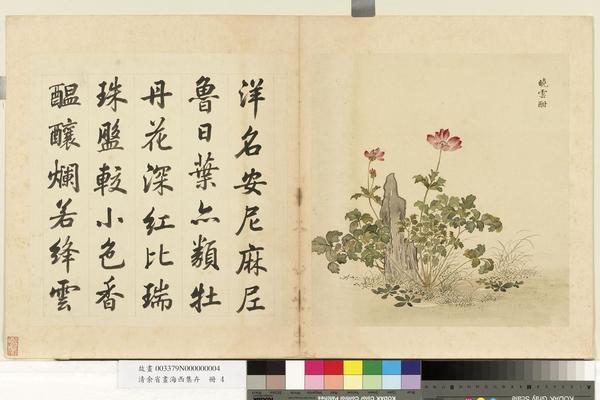 曉雲酣
洋名安尼麻尼
魯日葉亦類牡
丹花深紅比瑞
珠盤較小色香
醞釀爛若絳雲
故畫 003379N000000004
清余省畫海西集卉 冊 4
KODAK Gray Scale